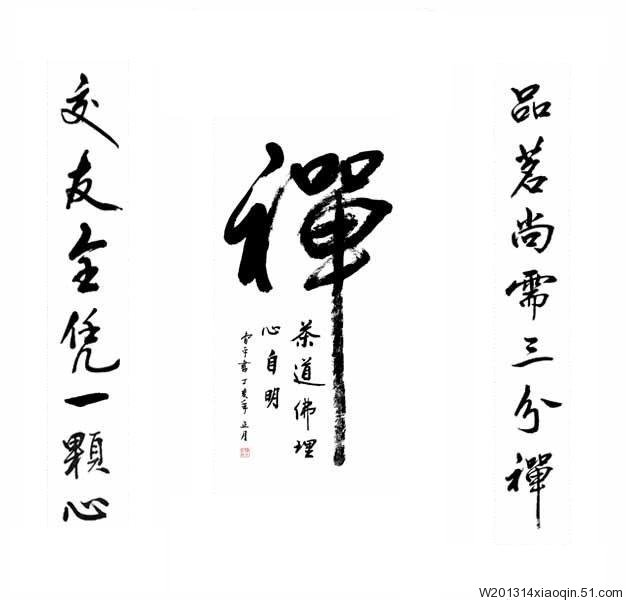 品茗尚需三分禪
禪
茶道佛理
心自明
雪平書丁亥年正月
交友全凭一顆心
W201314xiaoqin.51.com